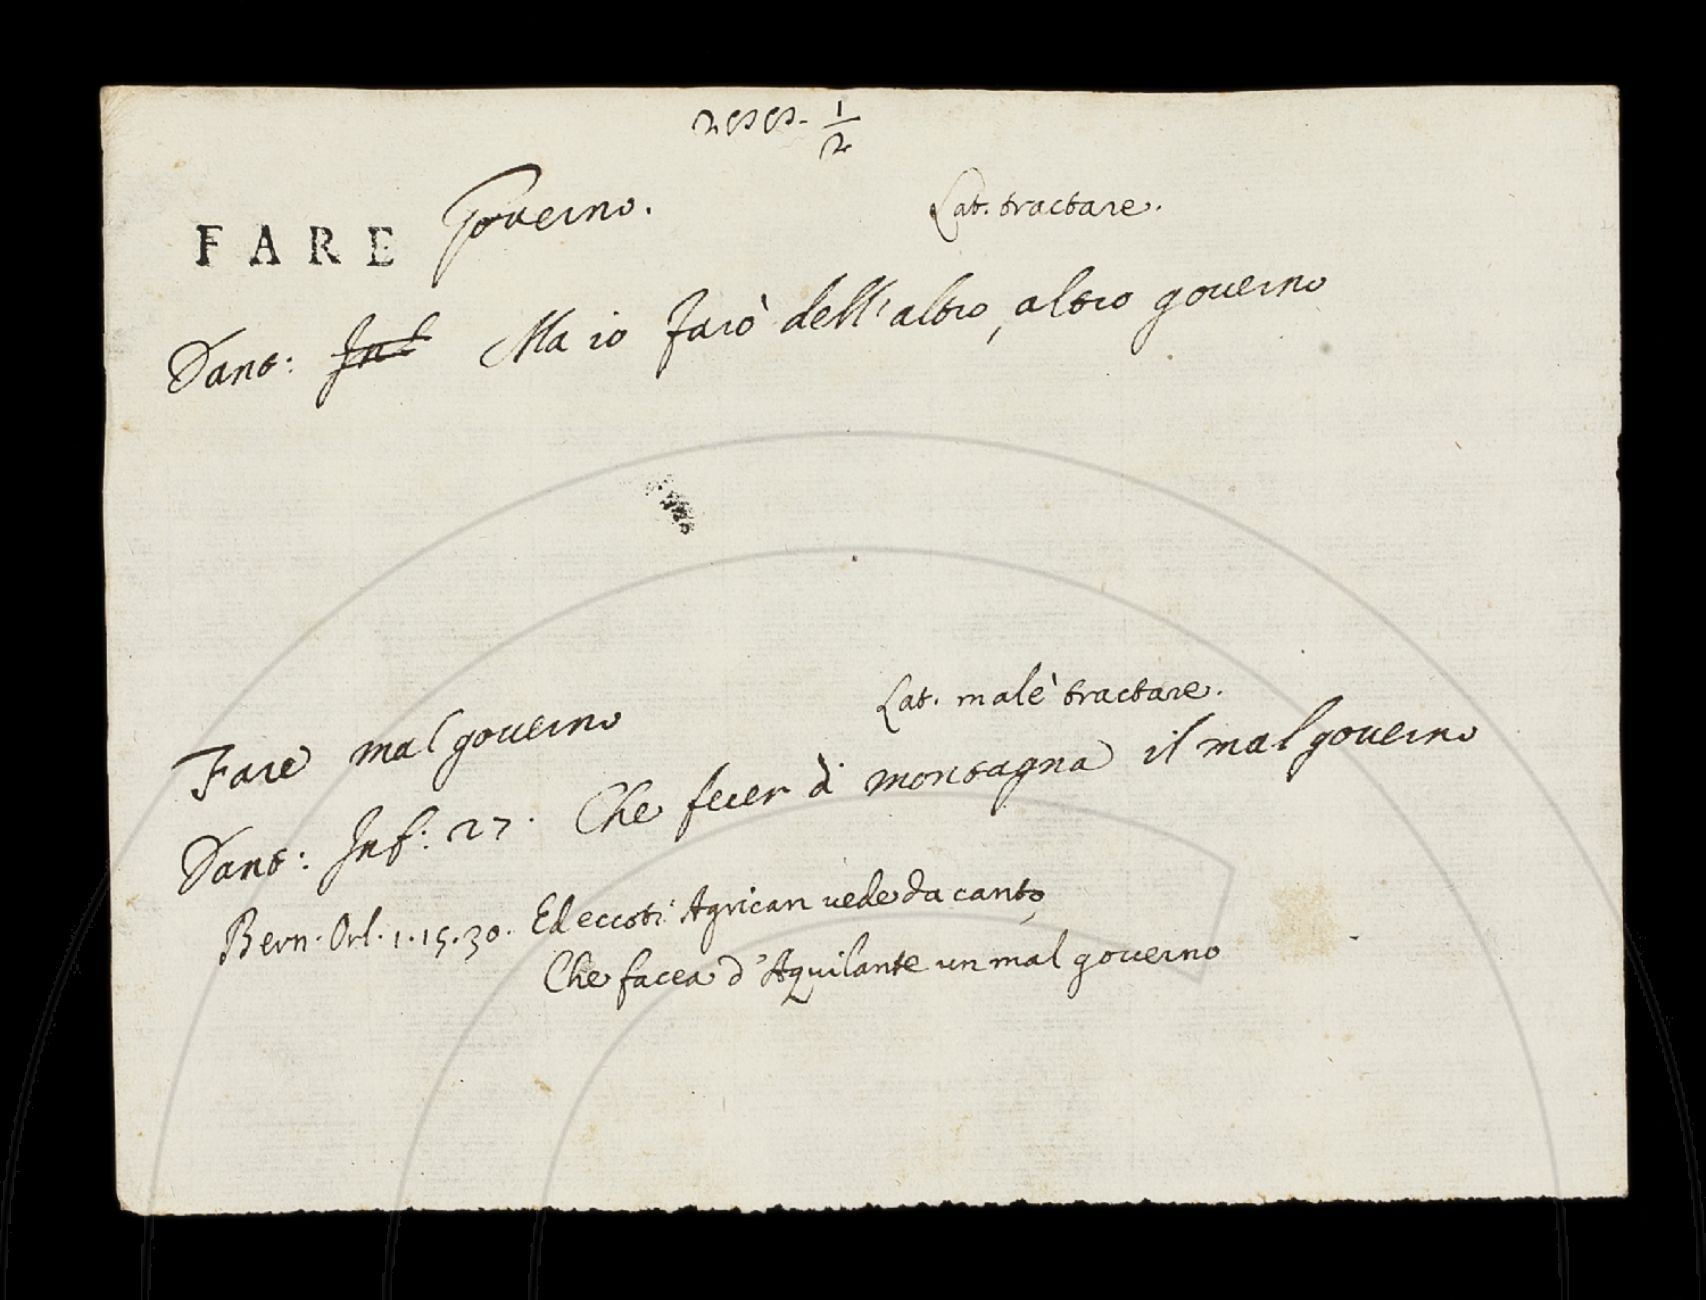 FARE Governo. Lat. tractare.
Dant: I̶n̶f̶ Ma io farò dell'altro, altro governo
Fare mal governo Lat. malè tractare.
Dant: Inf: 27. Che fecer di montagna il mal governo
Bern. Orl. 1.15.30. Ed eccoti Agrican vede da canto,
Che facea d'Aquilante un mal governo